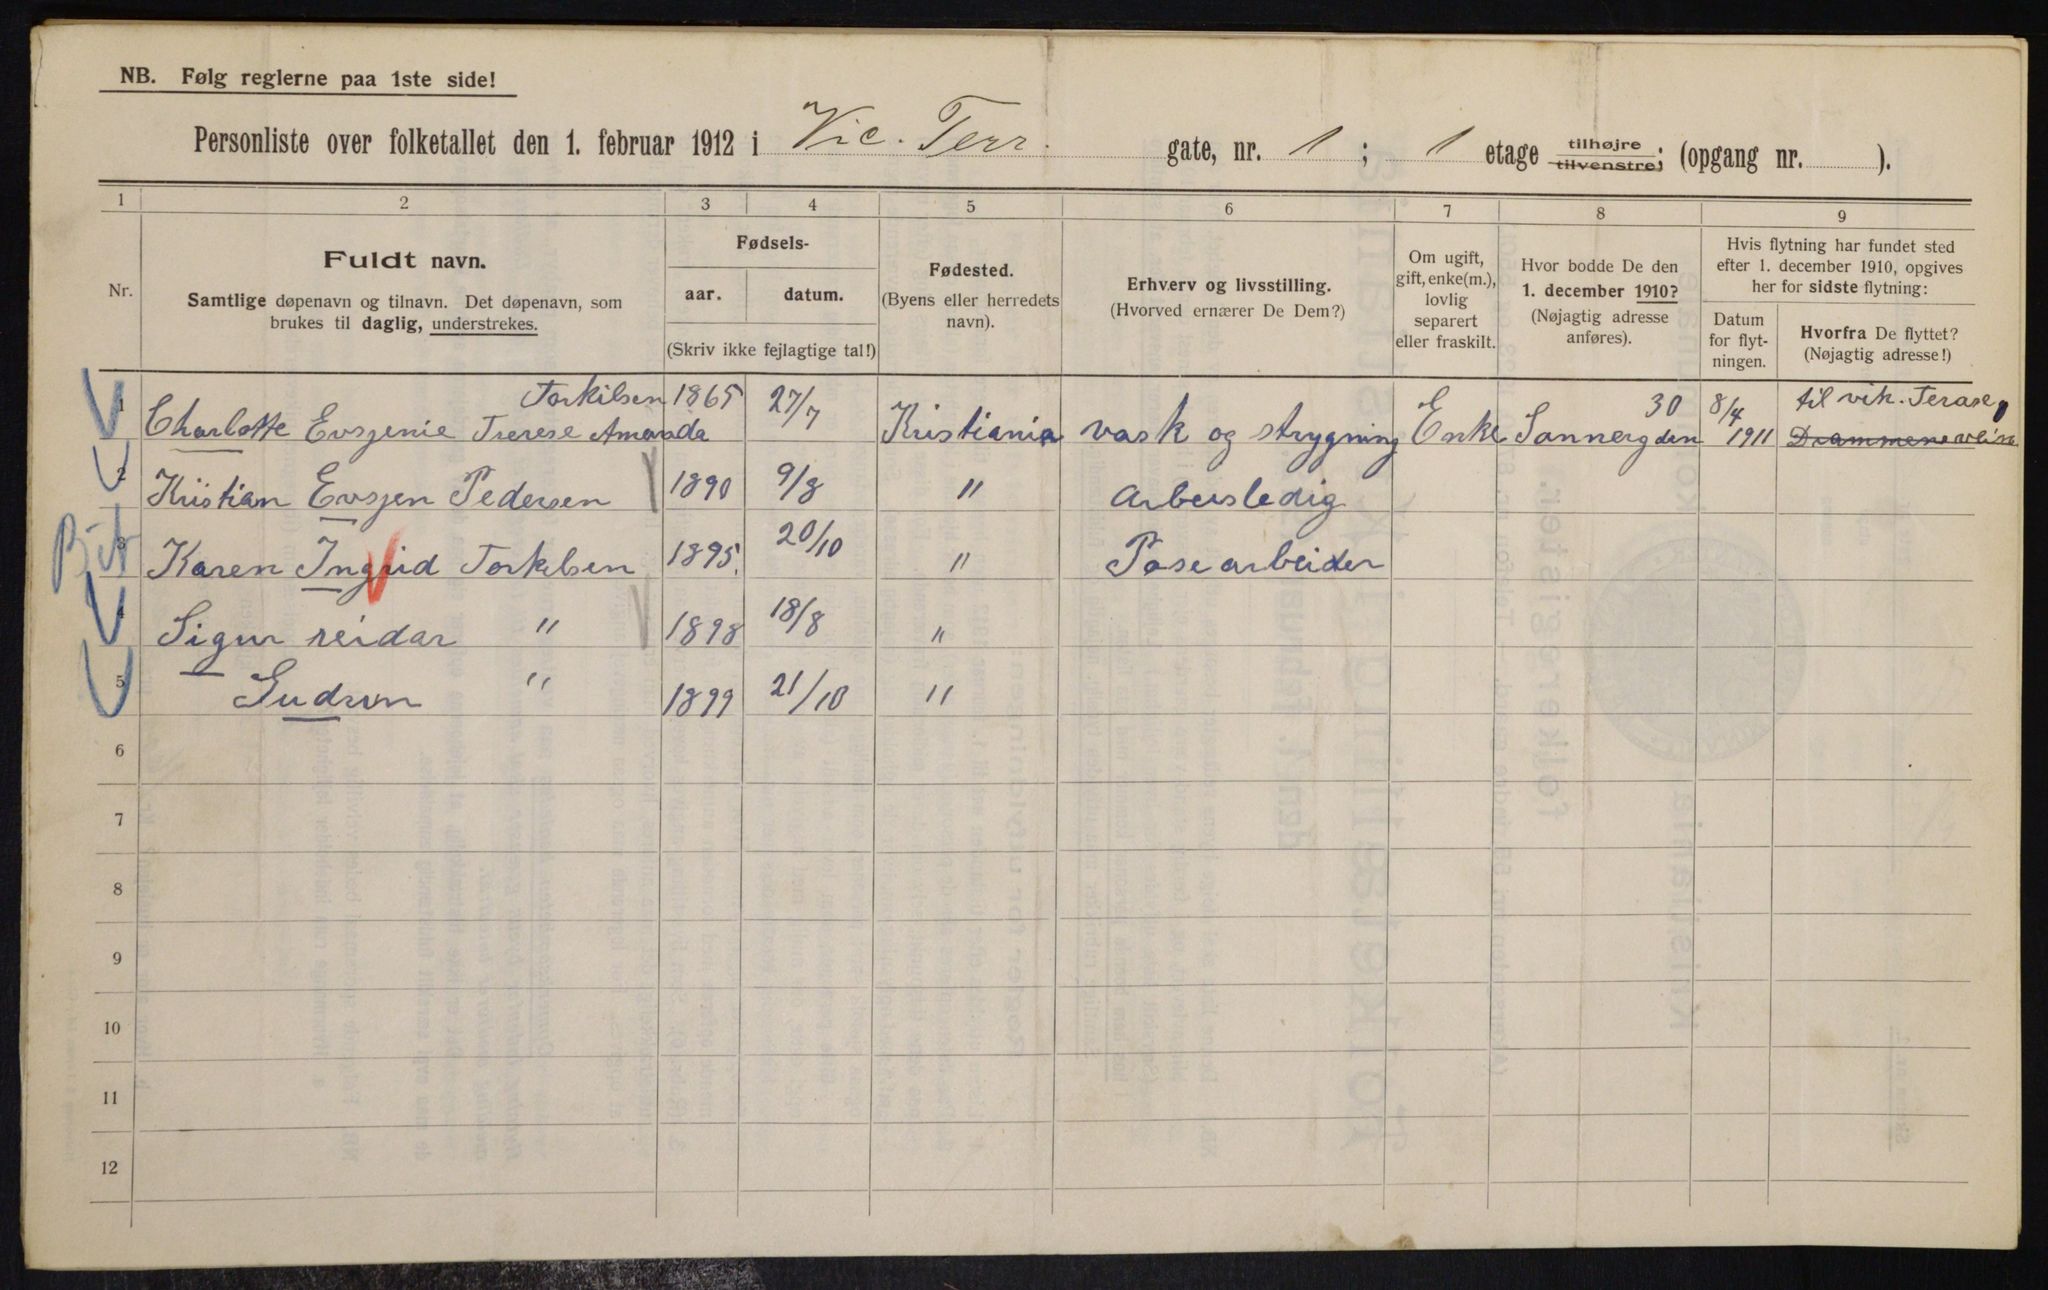 NB. Følg reglerne paa 1ste side!
Personliste over folketallet den 1. februar 1912 i Vic. Terr. gate, nr. 1; 1 etage tilhøjre tilvenstre; (opgang nr. ).
1 2 3 4 5 6 7 8 9
Nr.
Fuldt navn.
Samtlige døpenavn og tilnavn. Det døpenavn, som
brukes til daglig, understrekes.
Fødsels-
aar. datum.
(Skriv ikke fejlagtige tal!)
Fødested.
(Byens eller herredets
navn).
Erhverv og livsstilling.
(Hvorved ernærer De Dem?)
Om ugift,
gift, enke(m.),
lovlig
separert
eller fraskilt.
Hvor bodde De den
1. december 1910?
(Nøjagtig adresse
anføres).
Hvis flytning har fundet sted
efter 1. december 1910, opgives
her for sidste flytning:
Datum
for flyt-
ningen.
Hvorfra De flyttet?
(Nøjagtig adresse!)
Torkilsen 1865 27/7 30 8/4 til vik. Terase
1 Charlotte Evsjenie Trerese Amanda Kristiania vask og strygning Enke Sannergden 1911
2 Kristian Evsjen Pedersen 1890 9/8 " Arbeusledig
Bit
3 Karen Ingrid Torkelsen 1895. 20/10 " Posearbeider
4 Sigur reidar " 1898 18/8 "
5 Gudrun " 1899 21/10 "
6
7
8
9
10
11
12